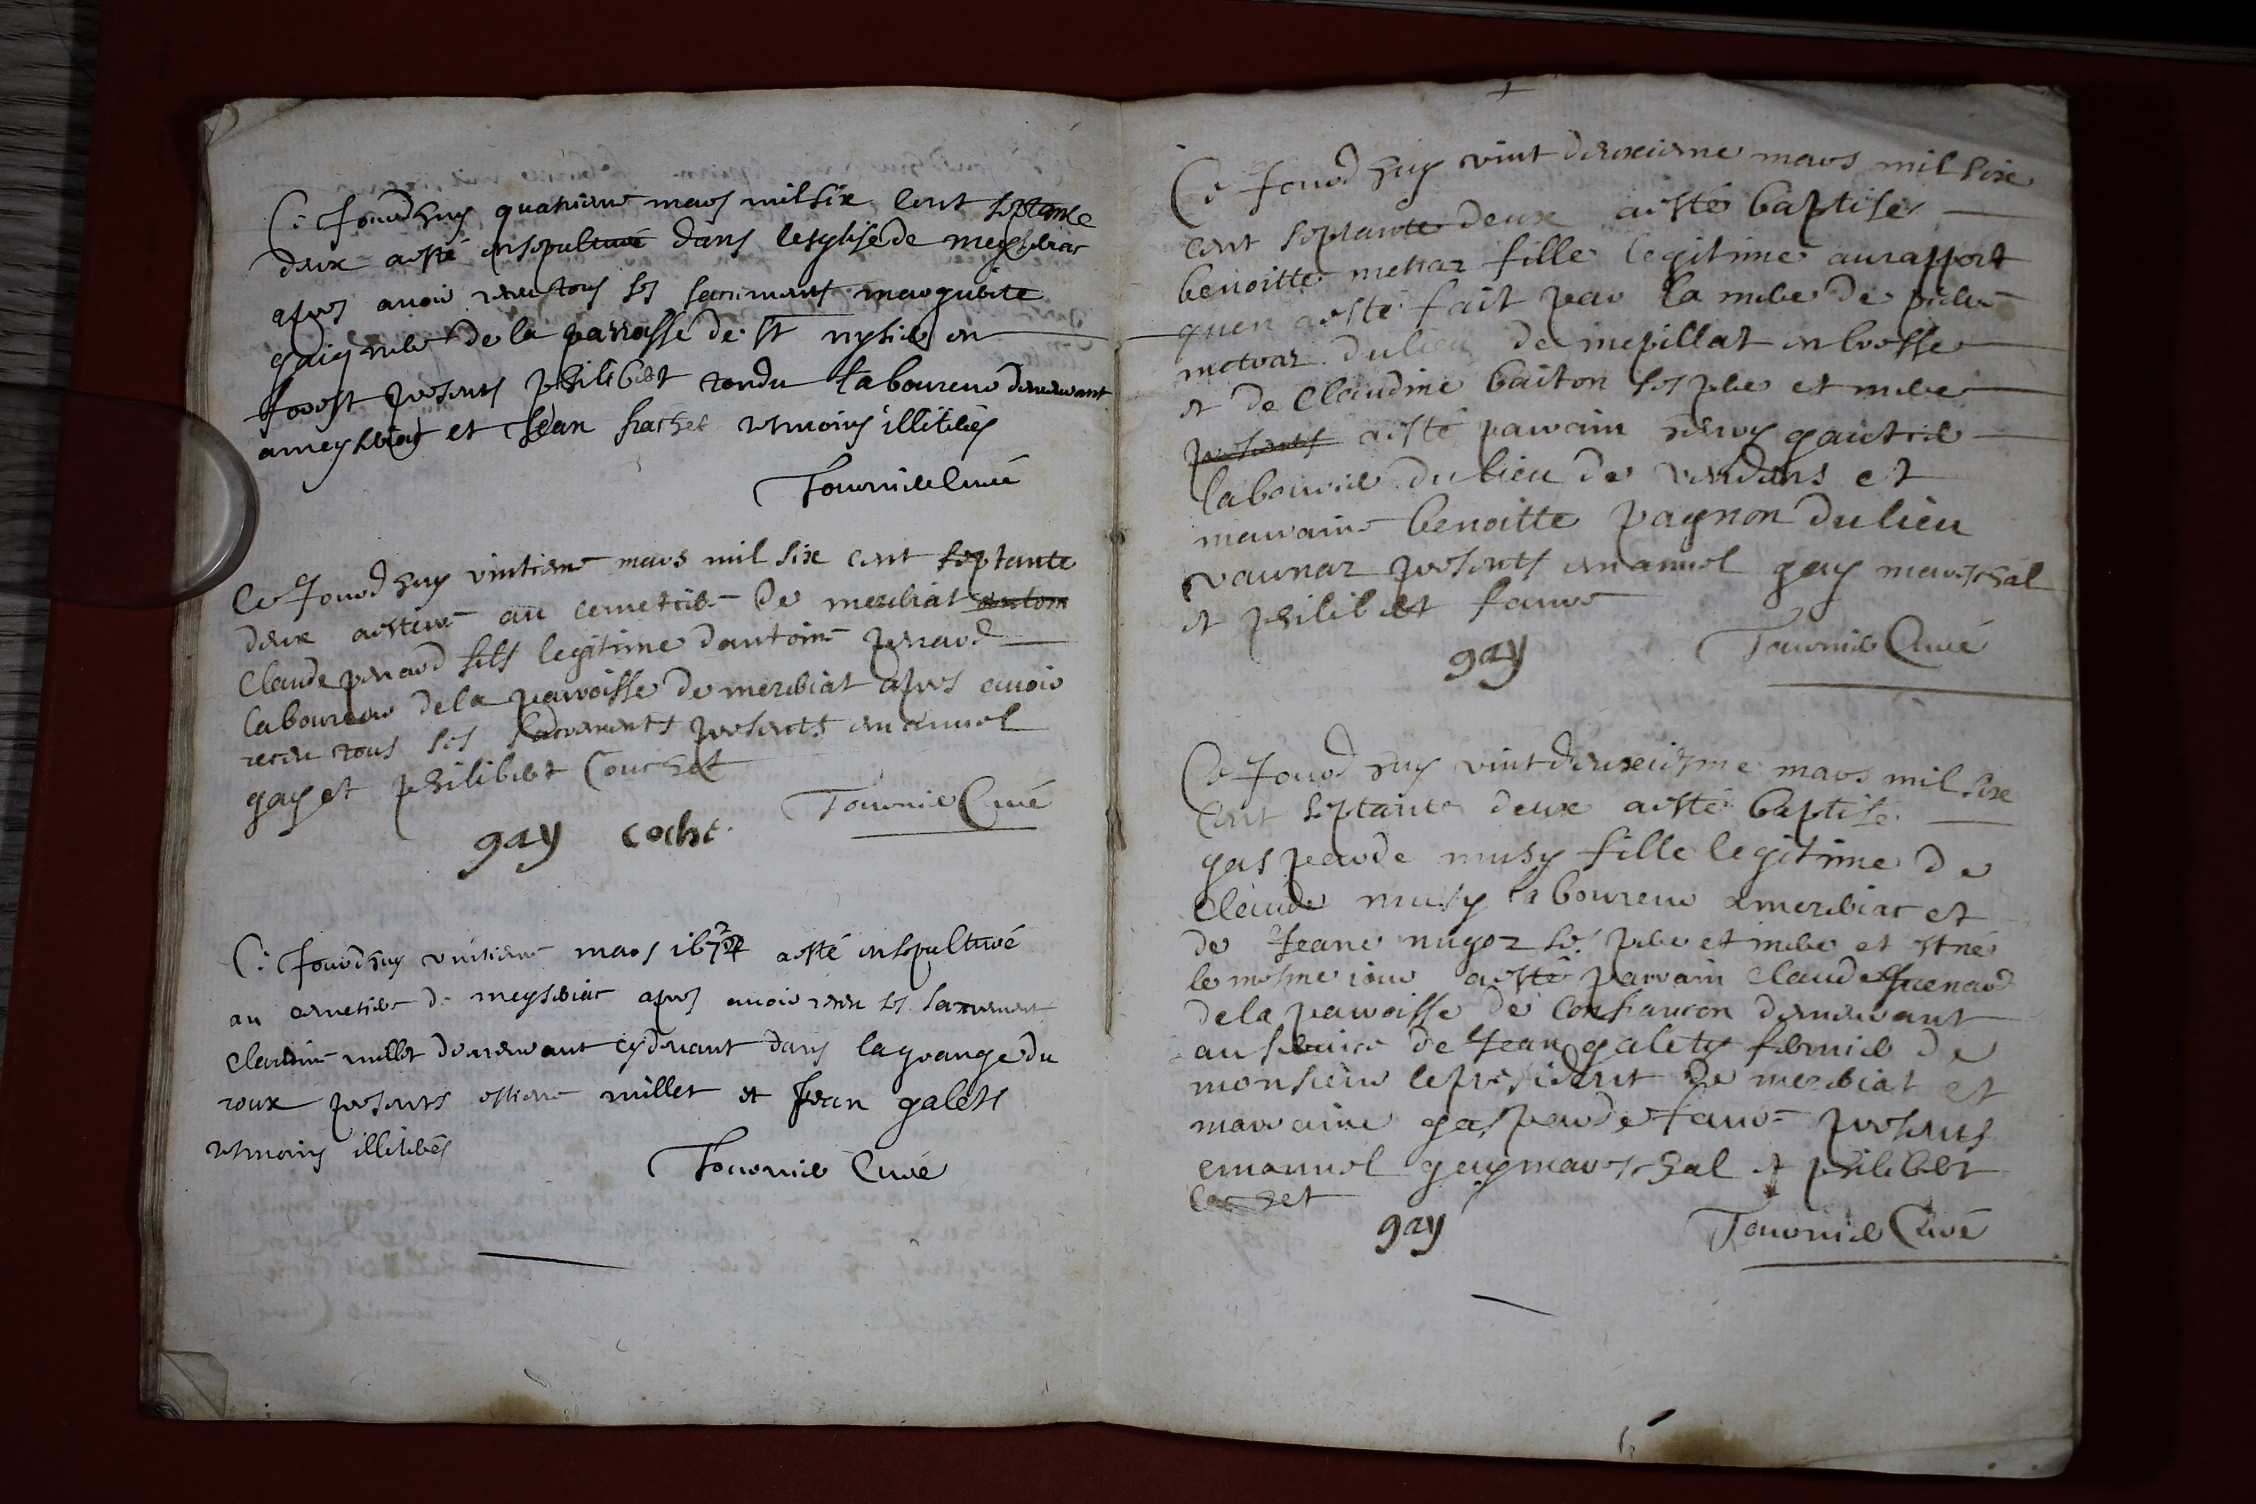 Ce Jourdhuy quatrieme mars mil six cent septante
deux aesté ensepulturé dans lesglise de meyseriac
apres auoir receu tous ses sacrements marguerite
de la parroisse de st nysier en
presents philibert tondu laboureur demeurant
a meyseriat et Jean hachet tesmoins illiterés
Tournier Curé
Ce Jourdhuy vintieme mars mil six cent septante
deux aesteré au cemetiere de mezeriat
Claude perrard fils legitime dantoine perrard
laboureur de la parroisse de mezeriat apres auoir
receu tous ses sacrements presents emanuel
gay et philibert Couchet
gay coche Tournier Curé
Ce Jourdhuy vintieme mars 1672 aesté ensepulturé
au cemetiere de meyseriac apres auoir receu ses sacrement
claudine millet demeurant cy deuant dans la grange du
roux presents estiene millet et Jean galets
tesmoins illiterés
Tournier Curé
Ce Jourdhuy vint deuxieme mars mil six
cent septante deux aesté baptisée
benoitte metraz fille legitime au rapport
quen aesté fait par la mere de pierre
metraz du lieu de mepillat en bresse
et de Claudine baiton ses pere et mere
presents aesté parrain gautier
laboureur du lieu de vendens et
marraine benoitte pagnon du lieu
vaunaz presents emanuel gay mareschal
et philibert faure
gay Tournier Curé
Ce Jourdhuy vint deuxieisme mars mil six
cent septante deux aesté baptisé
gasparde musy fille legitime de
Claude musy laboureur a mezeriac et
de Jeane nugoz ses pere et mere et est né
le mesme iour aesté parrain Claude
de la parroisse de Confrancon demeurant
au seruice de Jean galety fermier de
monsieur le president de mezeriat et
marraine gasparde faure presents
emanuel gay mareschal et philibert
cochet
gay Tournier Curé